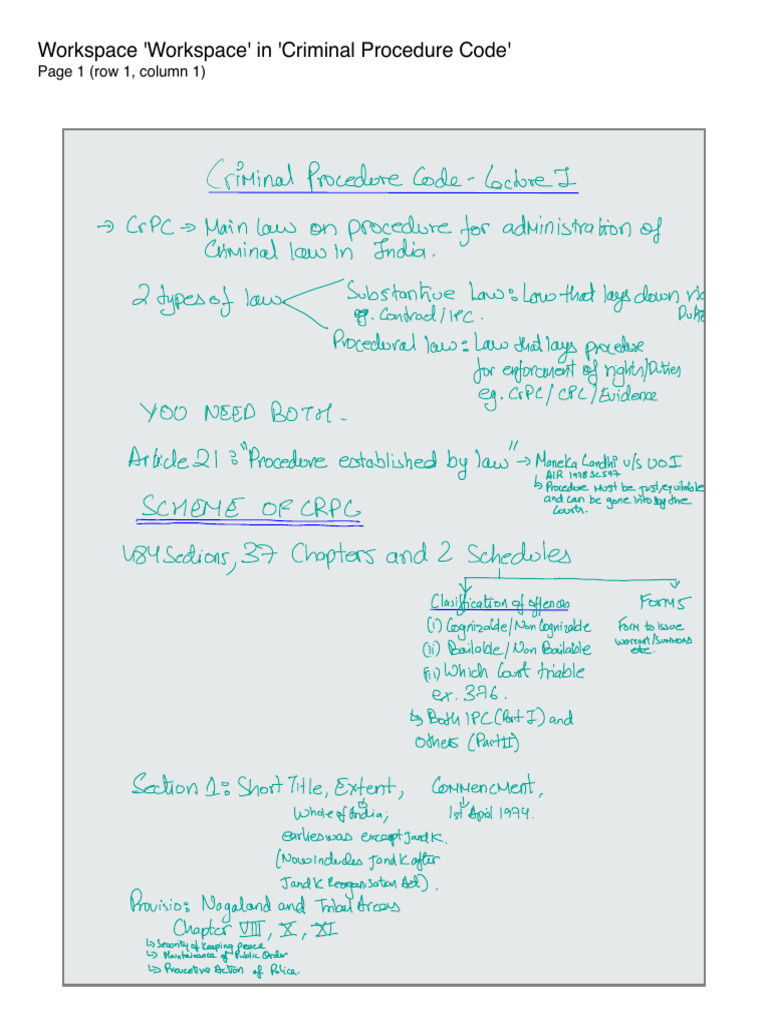 Workspace 'Workspace' in 'Criminal Procedure Code'
Page 1 (row 1, column 1)
Criminal Procedure Code - Lecture I
→ CrPC → Main law on procedure for administration of
Criminal law in India.
2 types of law
Substantive Law : Law that lays down
eg. Contract / IPC.
Procedural law : Law that lays procedure
for enforcement of rights/Duties
eg. CrPC / CPC / Evidence
YOU NEED BOTH -
Article 21 : "Procedure established by law" → Maneka Gandhi v/s UOI
AIR 1978 SC 597
↳ Procedure must be just, equitable
and can be gone into by the
Courts.
SCHEME OF CRPC
484 Sections, 37 Chapters and 2 Schedules
Classification of offences
(i) Cognizable / Non Cognizable
(ii) Bailable / Non Bailable
(iii) Which Court triable
ex. 376.
↳ Both IPC (Part I) and
others (Part II)
Forms
Form to issue
warrant/summons
etc.
Section 1 : Short Title, Extent, Commencment,
Whole of India;
earlier was except J and K.
(Now includes J and K after
J and K Reorganisation Act).
1st April 1974.
Provisio: Nagaland and Tribal Areas
Chapter VIII, X, XI
↳ Security of Keeping peace
↳ Maintainance of Public Order
↳ Preventive Action of Police.